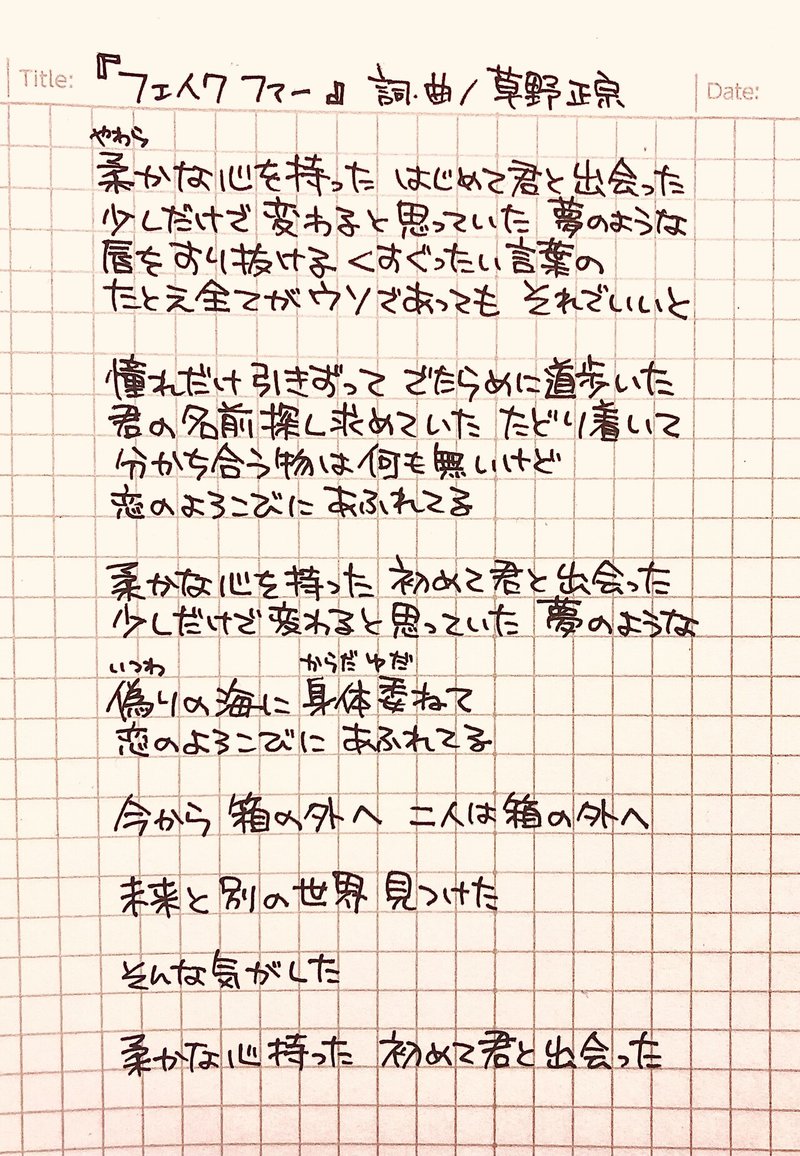 Title: 『フェイクファー』 詞・曲/草野正宗 Date:
やわら
柔かな心を持った はじめて君と出会った
少しだけで変わると思っていた 夢のような
唇をすり抜ける くすぐったい言葉の
たとえ全てがウソであっても それでいいと
憧れだけ引きずって でたらめに道歩いた
君の名前探し求めていた たどり着いて
分かち合う物は何も無いけど
恋のよろこびに あふれてる
柔かな心を持った 初めて君と出会った
少しだけで変わると思っていた 夢のような
いつわ からだ ゆだ
偽りの海に 身体委ねて
恋のよろこびに あふれてる
今から 箱の外へ 二人は箱の外へ
未来と別の世界 見つけた
そんな気がした
柔かな心持った 初めて君と出会った